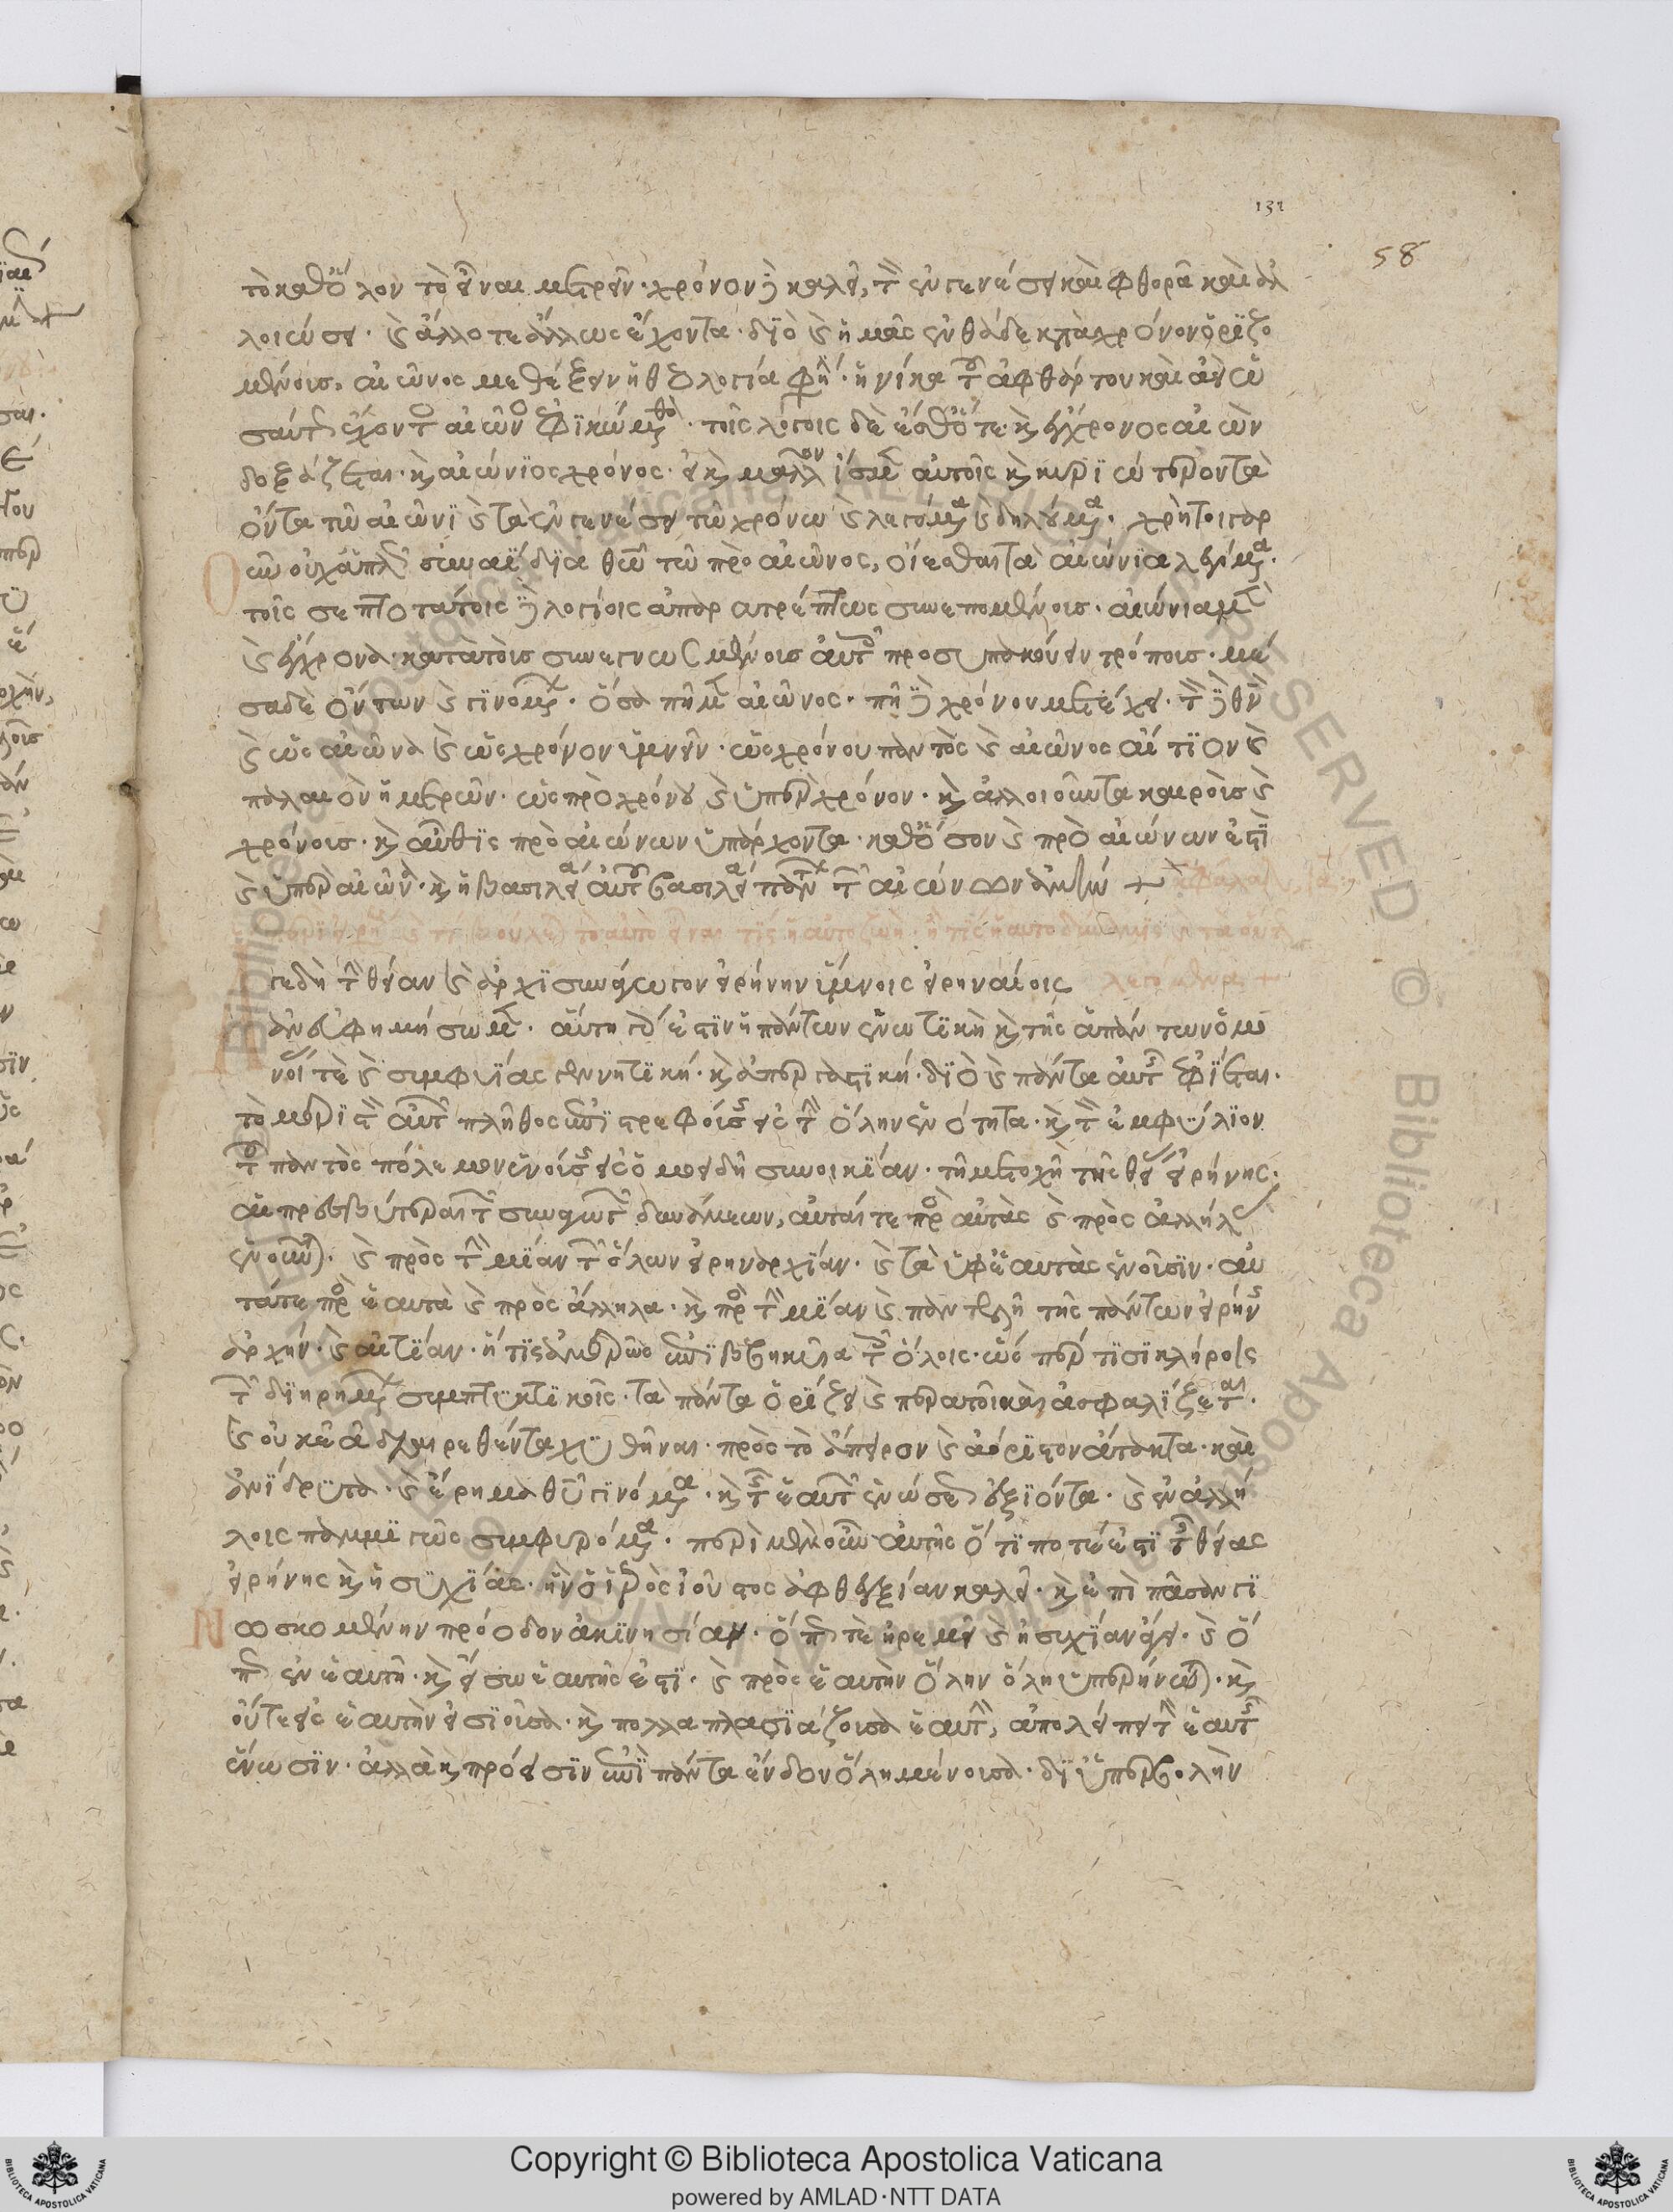 131
58
τὸ καθόλου τὸ εἶναι μετρεῖν. χρόνον δὲ καλεῖ, τὸν ἐν γενέσει καὶ φθορᾷ καὶ ἀλ
λοιώσει. καὶ ἄλλοτε ἄλλως ἔχοντα. διὸ καὶ ἡμᾶς ἐνθάδε κατὰ χρόνον ὁριζο
μένοις, αἰῶνος μεθέξειν ἡ θεολογία φησὶν. ἡνίκα τοῦ ἀφθάρτου καὶ ἀεὶ ὡ
σαύτως ἔχοντος αἰῶνος ἐφικώμεθα. τοῖς λογίοις δὲ ἔσθ' ὅτε καὶ ἔγχρονος αἰὼν
δοξάζεται. καὶ αἰώνιος χρόνος. εἰ καὶ μᾶλλον ἴσμεν αὐτοῖς καὶ κυριώτερον τὰ
ὄντα τῷ αἰῶνι καὶ τὰ ἐν γενέσει τῷ χρόνῳ καὶ λεγόμενα καὶ δηλούμενα. χρὴ τοιγαρ
οῦν οὐχ ἁπλῶς συναΐδια θεῷ τῷ πρὸ αἰῶνος, οἴεσθαι τὰ αἰώνια λεγόμενα.
τοῖς σεπτοτάτοις δὲ λογίοις ἀπαρατρέπτως συνεπομένοις. αἰώνια μὲν
καὶ ἔγχρονα κατὰ τοὺς συνεγνωσμένοις αὐτοῖς προσυπακούειν τρόποις. μέ
σα δὲ ὄντων καὶ γινομένων. ὅσα πῆ μὲν αἰῶνος. πῆ δὲ χρόνου μετέχει. τὸν δὲ θεὸν
καὶ ὡς αἰῶνα καὶ ὡς χρόνον ὑμνεῖν. ὡς χρόνου παντὸς καὶ αἰῶνος αἴτιον καὶ
παλαιὸν ἡμερῶν. ὡς πρὸ χρόνου καὶ ὑπὲρ χρόνον. καὶ ἀλλοιοῦντα καιροὺς καὶ
χρόνοις. καὶ αὖθις πρὸ αἰώνων ὑπάρχοντα. καθόσον καὶ πρὸ αἰώνων ἐστὶ
καὶ ὑπὲρ αἰώνων. καὶ ἡ βασιλεία αὐτοῦ βασιλεία πάντων τῶν αἰώνων ἀμήν +
τὸ αὐτὸ εἶναι τίς ἡ αὐτοζωὴ. ἢ τίς ἡ αὐτοδύναμις καὶ τὰ οὕτως
λεγόμενα +
Ἄγε δὴ τὴν θείαν καὶ ἀρχισυνάγωγον εἰρήνην ὕμνοις εἰρηναίοις
ἀνευφημήσωμεν. αὕτη γάρ ἐστιν ἡ πάντων ἑνωτικὴ καὶ τῆς ἁπάντων ὁμο
νοίας τὲ καὶ συμφυΐας γεννητικὴ. καὶ ἀπεργαστικὴ. διὸ καὶ πάντα αὐτῆς ἐφίεται.
τὸ μεριστὸν αὐτῶν πλῆθος ἐπιστρεφούσης εἰς τὴν ὅλην ἑνότητα. καὶ τὸν ἐμφύλιον
τοῦ παντὸς πόλεμον ἑνούσης εἰς ὁμοειδῆ συνοικίαν. τῇ μετοχῇ τῆς θείας εἰρήνης.
αἱ πρεσβύτεραι τῶν συναγωγῶν δυνάμεων, αὐταί τε πρὸς αὐτὰς καὶ πρὸς ἀλλήλας
ἑνοῦνται. καὶ πρὸς τὴν μίαν τῶν ὅλων εἰρηναρχίαν. καὶ τὰ ὑφ' ἑαυτὰς ἑνοῦσιν. αὐ
τά τε πρὸς ἑαυτὰ καὶ πρὸς ἄλληλα. καὶ πρὸς τὴν μίαν καὶ παντελῆ τῆς πάντων εἰρήνης
ἀρχὴν. καὶ αἰτίαν. ἥτις ἀμερῶς ἐπιβεβηκυῖα τοῖς ὅλοις. ὥσπερ τισὶ κλήροις
τῶν διῃρημένων συμπτυκτικοῖς. τὰ πάντα ὁρίζει καὶ περατοῖ καὶ ἀσφαλίζεται.
καὶ οὐκ ἐᾷ διαιρεθέντα χυθῆναι. πρὸς τὸ ἄπειρον καὶ ἀόριστον ἄτακτα. καὶ
ἀνίδρυτα. καὶ ἔρημα θεοῦ γινόμενα. καὶ τῆς ἑαυτῶν ἑνώσεως ἐξιόντα. καὶ ἐν ἀλλή
λοις παμμιγῶς συμφυρόμενα. περὶ μὲν οὖν αὐτῆς ὅτι ποτέ ἐστι τῆς θείας
εἰρήνης καὶ ἡσυχίας. ἣν ὁ ἱερὸς ἰοῦστος ἀφθεγξίαν καλεῖ. καὶ ἐπὶ πᾶσαν γι
νωσκομένην πρόοδον ἀκινησίαν. ὅπως τὲ ἠρεμεῖ καὶ ἡσυχίαν ἄγει. καὶ ὅ
πως ἐν ἑαυτῇ. καὶ εἴσω ἑαυτῆς ἐστὶ. καὶ πρὸς ἑαυτὴν ὅλην ὅλη ὑπερήνωται. καὶ
οὔτε εἰς ἑαυτὴν εἰσιοῦσα. καὶ πολλαπλασιάζουσα ἑαυτὴν, ἀπολείπει τὴν ἑαυτῆς
ἕνωσιν. ἀλλὰ καὶ πρόεισιν ἐπὶ πάντα ἔνδον ὅλη μένουσα. δι' ὑπερβολὴν
Copyright © Biblioteca Apostolica Vaticana
powered by AMLAD·NTT DATA